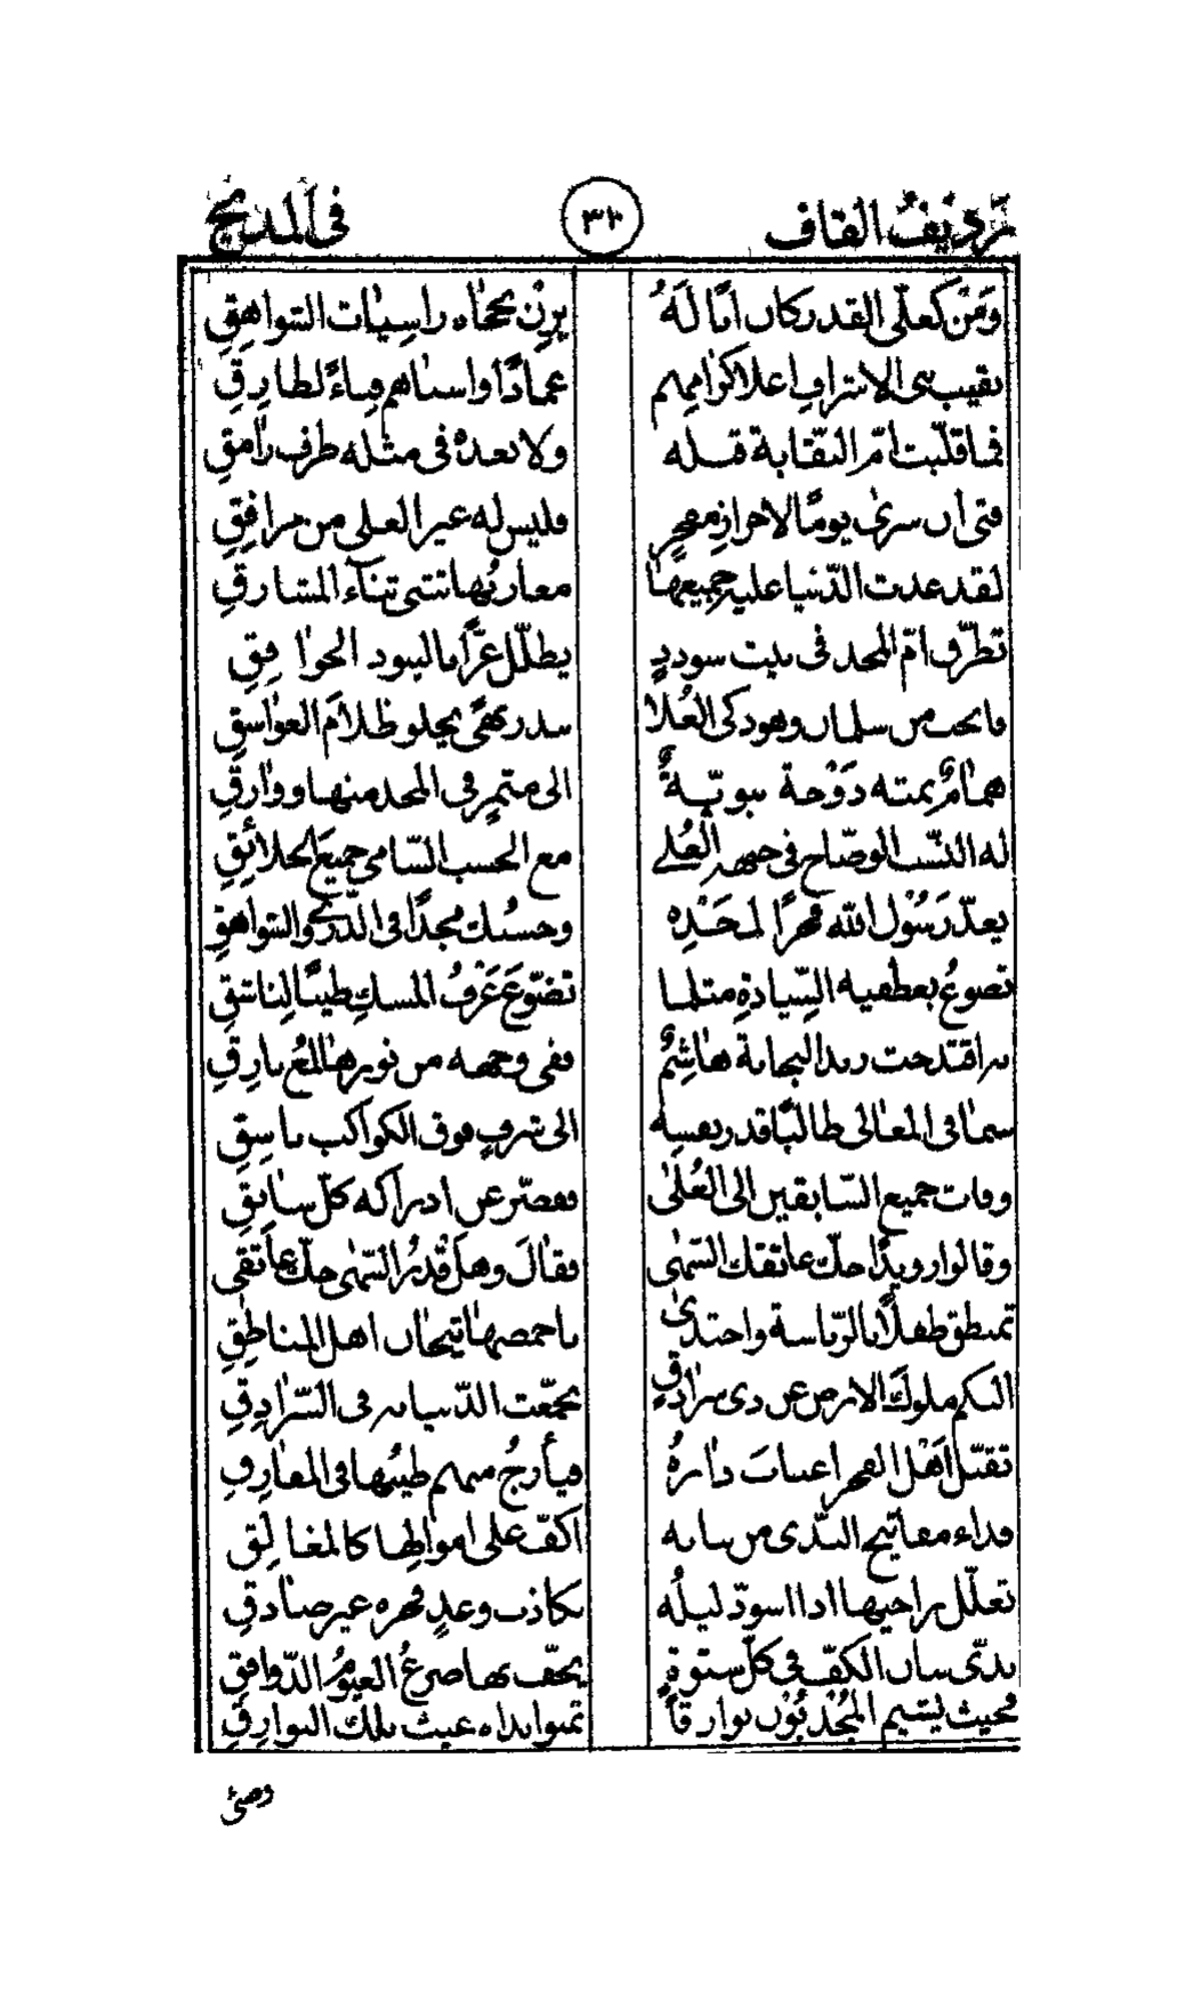 رديف القاف ٣٢ في المديح
وَمَن كعلي القدر كان أبًا لَهُ يزِنْ بحجاه راسِيات الشواهقِ
نقيب بني الاشرافِ اعلاكرامهم عمادًا واسناهم فِناءً لطارِقِ
فما قلّبت امّ النقابة قبله ولا بعدهُ في مثله طرف رامقِ
فتى ان سرى يومًا لاحرازِ مفخرٍ فليس له غير العلى من مرافِقِ
لقد غدت الدّنيا عليه جميعها مغاربُها تثني ثناءَ المشارقِ
تطرّق امّ المجد في بيت سوددٍ يطلّل عزًّا بالبنود الخوافِقِ
فانجب من سلمان وهو ذكى العُلا ببدر نُهًى يجلو ظلام الغواسقِ
همامٌ نمته دَوْحة نبويّةٌ الى مثمرٍ في المجد منها ووارِقِ
له النّسب الوضّاح في جبهة العُلى مع الحسب السّامي جميعَ الخلائقِ
يعدّ رَسُول الله فخرًا لمجْدِه وحسبُك مجدًا في الذّرى والشواهقِ
تضوعُ بعطفيه السّيادةِ مثلما تضوّعَ عَرْفُ المسكِ طيبًا لِناشقِ
به اقتدحت زند النجابة هاشِمٌ ففي وجهه من نورها لمعُ بارِقِ
سما في المعالي طالبًا قدر نفسِه الى شرفٍ فوق الكواكب باسِقِ
وفات جميع السّابقين الى العُلى فقصّر عن ادراكه كلّ سابِقِ
وقالوا رويدًا حكّ عاتقك السّهى فقالَ وهل قدرُ السّهى حكّ عاتقي
تمنطق طفلًا بالرّياسة واحتذى باخمصها تيجان اهل المناطِقِ
اليكم ملوك الارض عن ذي سرادقٍ تجمّعت الدّنيا به في السّرادِقِ
تقبّل اَهْل الفخر اعتابَ دارهُ فيأرجُ منهم طيبُها في المفارِقِ
فداء مفاتيح النّدى من بنانه اكفّ على اموالها كالمغالِقِ
تعلّل راجيها اذا اسودّ ليلُه بكاذب وعدٍ فجره غير صادقِ
ندىّ بنان الكفّ في كلّ شتوةٍ يخفّ بها ضرعُ الغيومُ الدّوافقِ
بحيث يشيم المُجْدِبُوْن بوارقًا تمنّوا نداه غيث تلك البوارِقِ